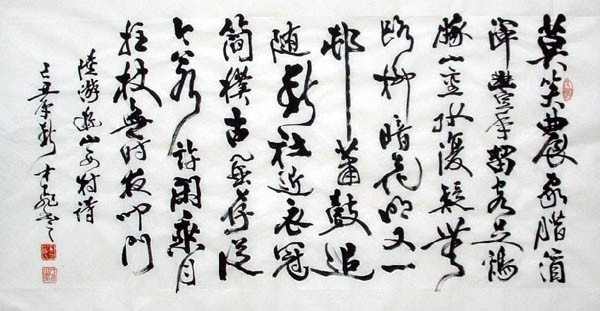 莫笑農家腊酒
渾豐年留客足鷄
豚山重水復疑無
路柳暗花明又一
邨簫鼓追
随春社近衣冠
簡樸古風存從
今若許閑乘月
拄杖無時夜叩門
陸游遊山西村詩
己丑年春